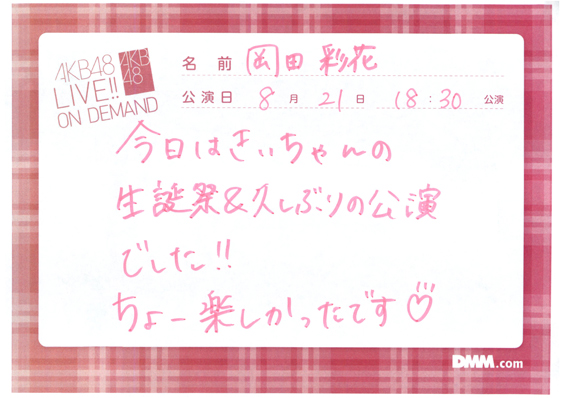 AKB48
LIVE!!
ON DEMAND
AKB
48
名前 岡田彩花
公演日 8月21日 18:30 公演
今日はきぃちゃんの
生誕祭&久しぶりの公演
でした!!
ちょー楽しかったです♡
DMM.com